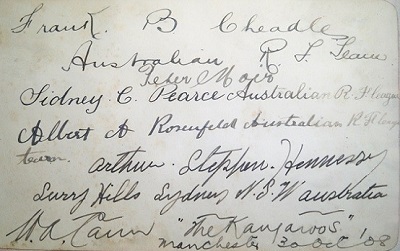 Frank. B Cheadle
Australian R. F. Team
Peter Moir
Sidney C. Pearce Australian R. F. League
Albert A Rosenfeld Australian R. F. League
team. Arthur. Stephen. Hennessy
Surry Hills Sydney N. S. W Australia
W. A. Cann "The Kangaroos"
Manchester 30 Oct '08